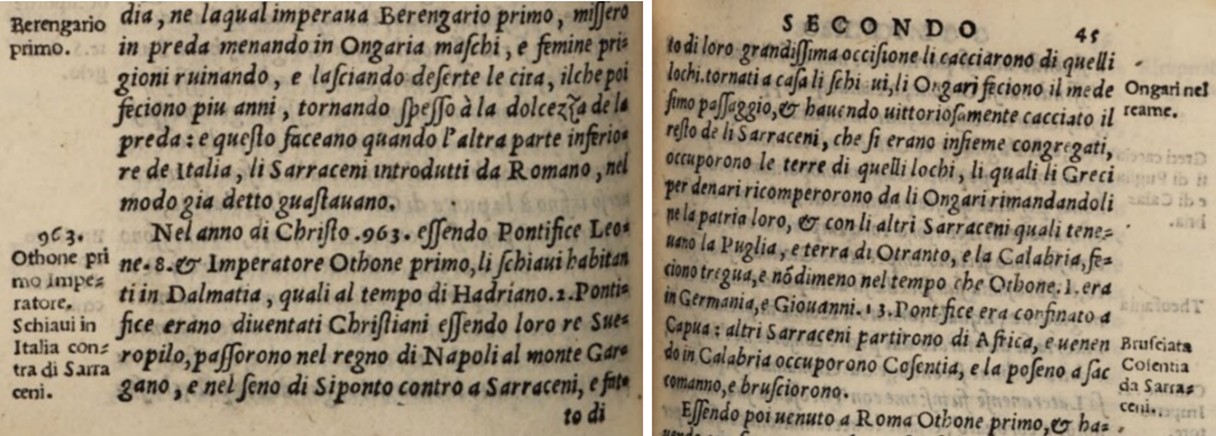 Berengario
primo.
dia, ne laqual imperaua Berengario primo, missero
in preda menando in Ongaria maschi, e femine pri=
gioni ruinando, e lasciando deserte le cita, ilche poi
feciono piu anni, tornando spesso à la dolcezza de la
preda: e questo faceano quando l'altra parte inferio=
re de Italia, li Sarraceni introdutti da Romano, nel
modo gia detto guastauano.
963.
Othone pri
mo impe=
ratore.
Schiaui in
Italia con=
tra di Sarra
ceni.
Nel anno di Christo .963. essendo Pontifice Leo=
ne.8.& Imperatore Othone primo, li schiaui habitan
ti in Dalmatia, quali al tempo di Hadriano.2.Ponti=
fice erano diuentati Christiani essendo loro re Sue=
ropilo, passorono nel regno di Napoli al monte Gar=
gano, e nel seno di Siponto contro a Sarraceni, e fat=
to di
SECONDO 45
to di loro grandissima occisione li cacciarono di quelli
lochi.tornati a casa li schi ui,li Ongari feciono il mede
simo passaggio,& hauendo uittoriosamente cacciato il
resto de li Sarraceni, che si erano insieme congregati,
occuporono le terre di quelli lochi, li quali li Greci
per denari ricomperorono da li Ongari rimandandoli
ne la patria loro, & con li altri Sarraceni quali tene=
uano la Puglia, e terra di Otranto, e la Calabria, fe=
ciono tregua, e nõdimeno nel tempo che Othone.1.era
in Germania, e Giouanni.13.Pontifice era confinato a
Capua: altri Sarraceni partirono di Africa, e uenen
do in Calabria occuporono Cosentia, e la poseno a sac
comanno, e brusciorono.
Essendo poi uenuto a Roma Othone primo, & ha=
Ongari nel
reame.
Brusciata
Cosentia
da Sarra=
ceni.